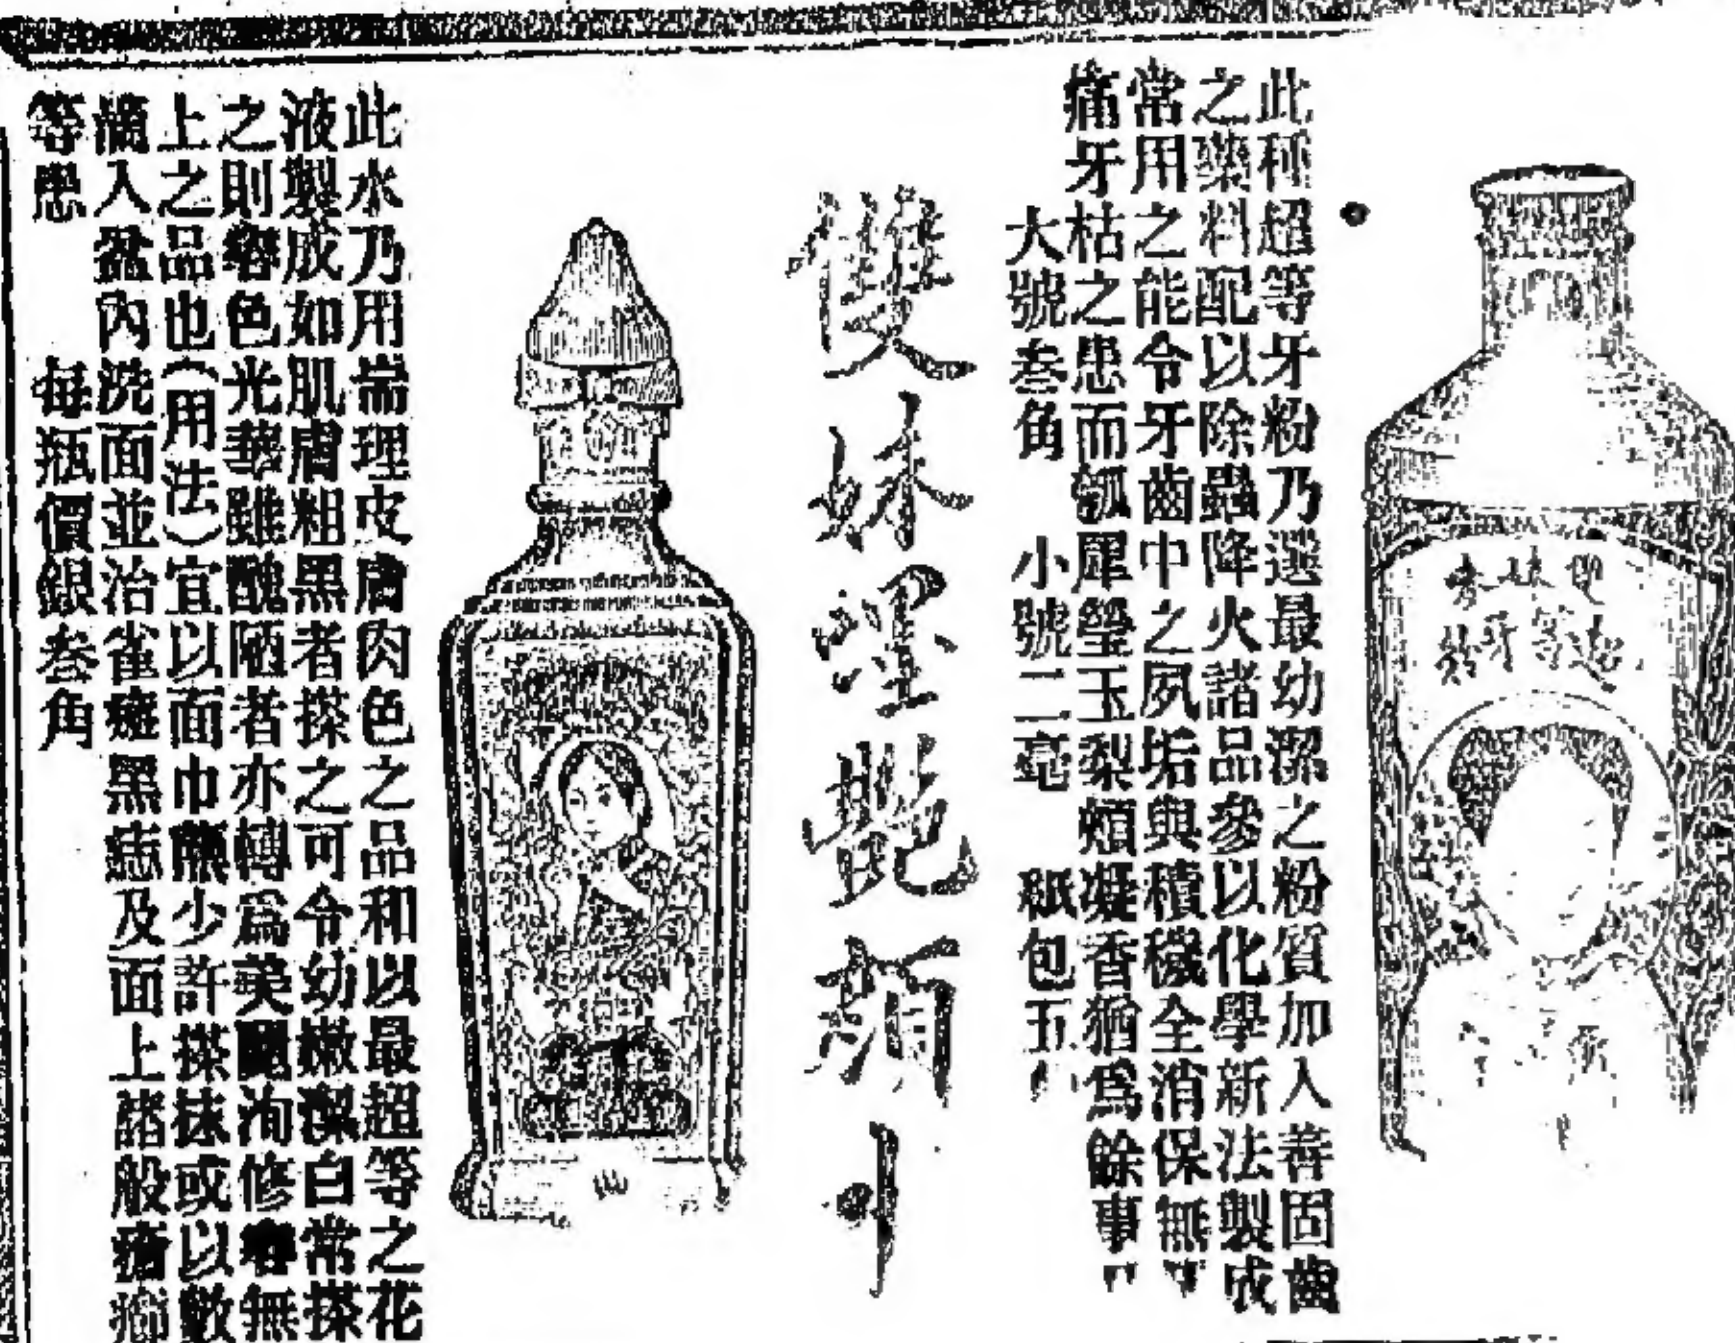 此種超等牙粉乃選最幼潔之粉質加入善固齒
之藥料配以除蟲降火諸品參以化學新法製成
常用之能令牙齒中之夙垢與積穢全消保無
痛牙枯之患而瓠犀瑩玉梨頰凝香猶爲餘事
大號叁角 小號二毫 紙包五
雙妹嘿艷顏
此水乃用耑理皮膚肉色之品和以最超等之花
液製成如肌膚粗黑者搽之可令幼嫩潔白常搽
之則容色光華雖醜陋者亦轉爲美麗洵修容無
上之品也（用法）宜以面巾蘸少許搽抹或以數
滴入盆內洗面並治雀斑黑痣及面上諸般瘡癤
等患 每瓶價銀叁角